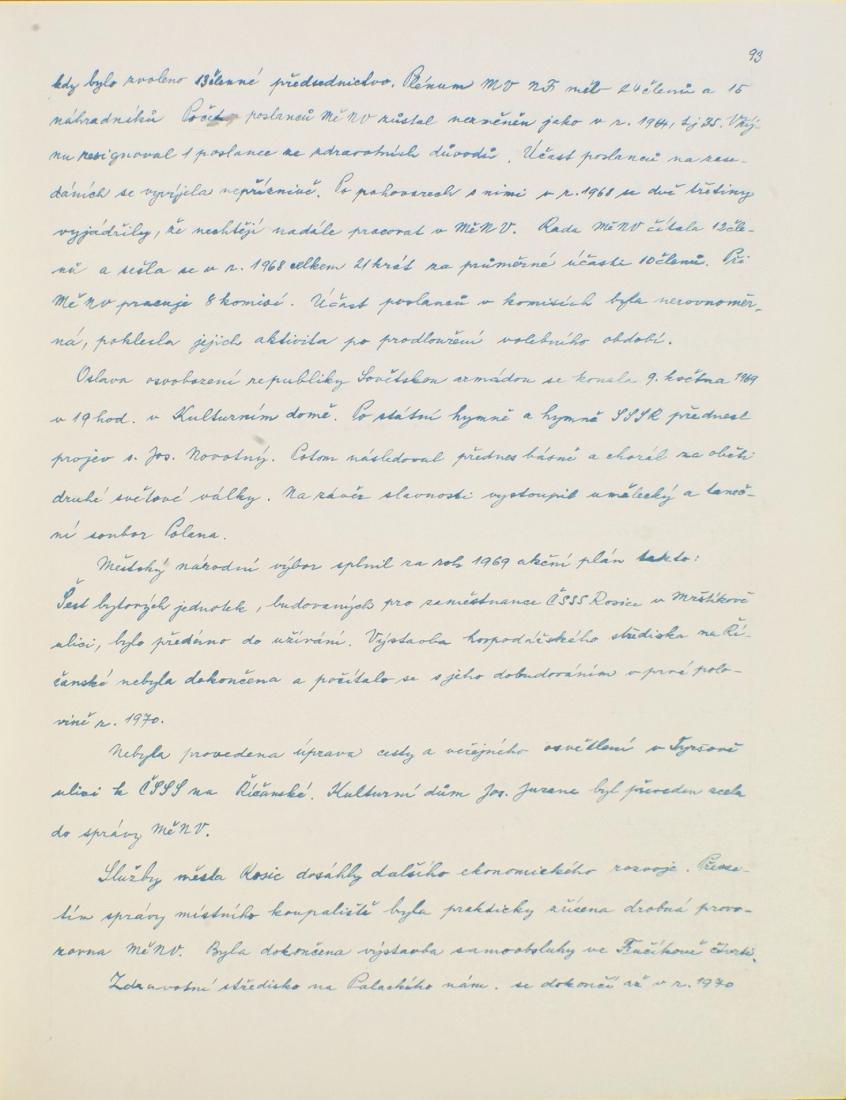 93
kdy bylo zvoleno 13členné předsednictvo. Plénum MV NF mělo 24 členů a 15
náhradníků Počet poslanců MěNV zůstal nezměněn jako v r. 1964, tj 35. V říj-
nu resignoval 1 poslanec ze zdravotních důvodů. Účast poslanců na zase-
dáních se vyvíjela nepříznivě. Po pohovorech s nimi v r. 1968 se dvě třetiny
vyjádřily, že nechtějí nadále pracovat v MěNV. Rada MěNV čítala 12 čle-
nů a sešla se v r. 1968 celkem 21 krát za průměrné účasti 10 členů. Při
MěNV pracuje 8 komisí. Účast poslanců v komisích byla nerovnoměr-
ná, poklesla jejich aktivita po prodloužení volebního období.
Oslava osvobození republiky Sovětskou armádou se konala 9. května 1969
v 19 hod. v Kulturním domě. Po státní hymně a hymně SSSR přednesl
projev s. Jos. Novotný. Potom následoval přednes básně a chorál za oběti
druhé světové války. Na závěr slavnosti vystoupil umělecký a taneč-
ní soubor Polana.
Městský národní výbor splnil za rok 1969 akční plán takto:
Šest bytových jednotek, budovaných pro zaměstnance ČSSS Rosice v Mrštíkově
ulici, bylo předáno do užívání. Výstavba hospodářského střediska na Ří-
čanské nebyla dokončena a počítalo se s jeho dobudováním v prvé polo-
vině r. 1970.
Nebyla provedena úprava cesty a veřejného osvětlení v Tyršově
ulici k ČSSS na Říčanské. Kulturní dům Jos. Jurana byl převeden zcela
do správy MěNV.
Služby města Rosic dosáhly dalšího ekonomického rozvoje. Převze-
tím správy místního koupaliště byla prakticky zřízena drobná provo-
zovna MěNV. Byla dokončena výstavba samoobsluhy ve Fučíkově čtvrti.
Zdravotní středisko na Palackého nám. se dokončí až v r. 1970